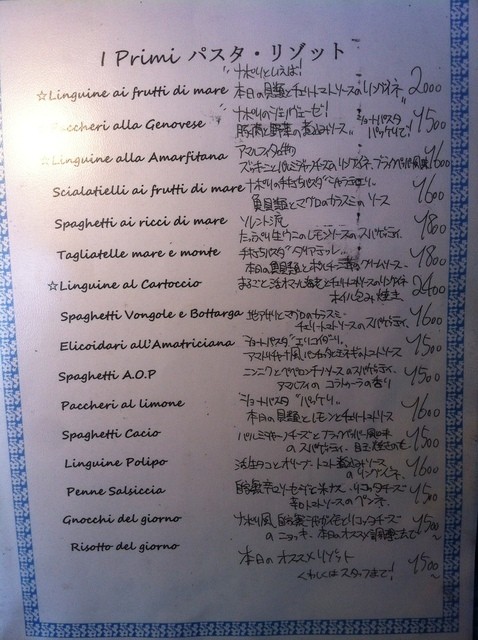 I Primi パスタ・リゾット
"ナポリといえば!
☆Linguine ai frutti di mare 本日の貝類とチェリートマトソースのリングイネ" 2000
"ナポリのジェノヴェーゼ! ショートパスタ
Paccheri alla Genovese 豚肉と野菜の煮込みソース" パッケリで! 1500
アマルフィ名物
☆Linguine alla Amarfitana ズッキーニとパルミジャーノチーズのリングイネ、ブラックペッパー風味 1600
ナポリの手打ちパスタ"シャラティエッリ、
Scialatielli ai frutti di mare 魚貝類とマグロのカラスミのソース 1600
ソレント流
Spaghetti ai ricci di mare たっぷり生ウニのレモンソースのスパゲティ. 1800
手打ちパスタ"タリアテッレ、
Tagliatelle mare e monte 本日の魚貝類とポルチーニ茸のクリームソース. 1800
☆Linguine al Cartoccio まるごと活オマール海老とチェリートマトソースのリングイネ 2400
ホイル包み焼き
Spaghetti Vongole e Bottarga 地アサリとマグロのカラスミ・ 1600
チェリートマトソースのスパゲティ.
Elicoidari all'Amatriciana ショートパスタ"エリコイダーリ、 1500
アマトリチャーナ風 パンチェッタと玉ネギのトマトソース
Spaghetti A.O.P ニンニクとペペロンチーノソースのスパゲティ. 1500
アマルフィのコラトゥーラの香り
Paccheri al limone ショートパスタ"パッケリ、 1600
本日の貝類とレモンとチェリートマトソース
Spaghetti Cacio パルミジャーノチーズとブラックペッパー風味 1500
のスパゲティ. 目玉焼きのせ.
Linguine Polipo 活生タコとオリーブ・トマト煮込みソース 1600
のリングイネ.
Penne Salsiccia 自家製辛口ソーセージと茄子・リコッタチーズ 1500
辛口トマトソースのペンネ.
Gnocchi del giorno ナポリ風 自家製じゃがイモとリコッタチーズ 1500~
のニョッキ、本日のオススメ調理法で!
Risotto del giorno 本日のオススメリゾット 1500~
くわしくはスタッフまで!